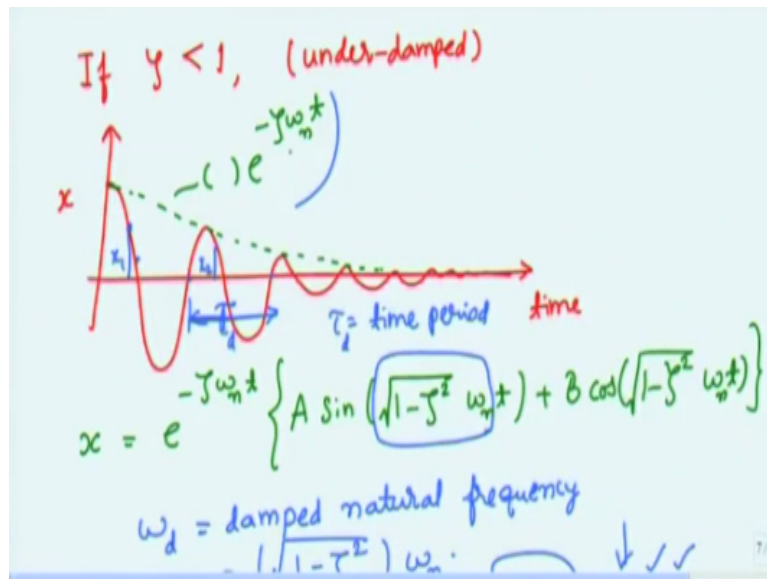 If ζ < 1, (under-damped)
( ) e^{-ζω_n t}
x
x₁
x₂
τ_d
τ_d = time period
time
x = e^{-ζω_n t} { A sin (√(1-ζ²) ω_n t) + B cos(√(1-ζ²) ω_n t) }
ω_d = damped natural frequency
= (√(1-ζ²)) ω_n.